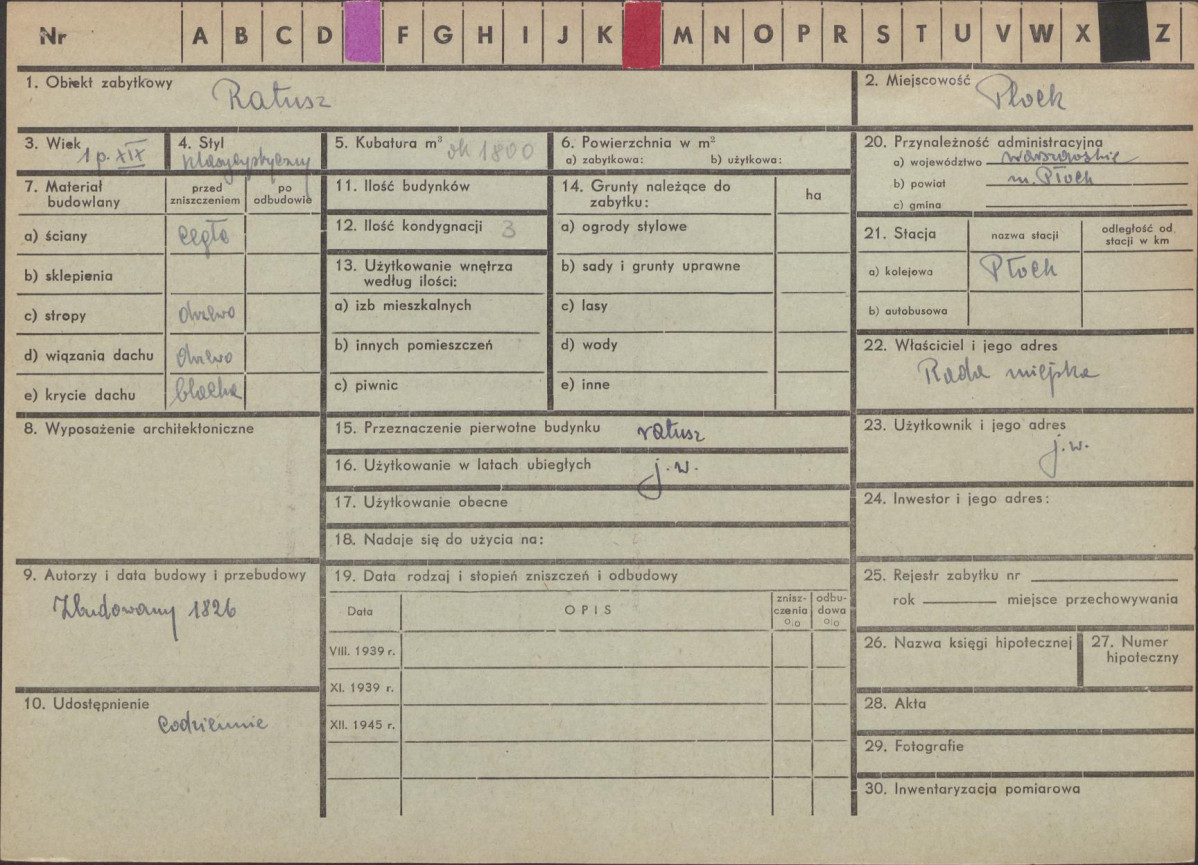 Nr A B C D F G H I J K M N O P R S T U V W X Z
1. Obiekt zabytkowy Ratusz
2. Miejscowość Płock
3. Wiek 1 p. XIX
4. Styl klasycystyczny
5. Kubatura m³ ok 1800
6. Powierzchnia w m²
a) zabytkowa: b) użytkowa:
7. Materiał budowlany
przed zniszczeniem
po odbudowie
a) ściany cegła
b) sklepienia
c) stropy drzewo
d) wiązania dachu drzewo
e) krycie dachu blacha
8. Wyposażenie architektoniczne
9. Autorzy i data budowy i przebudowy
Zbudowany 1826
10. Udostępnienie
codziennie
11. Ilość budynków
12. Ilość kondygnacji 3
13. Użytkowanie wnętrza
według ilości:
a) izb mieszkalnych
b) innych pomieszczeń
c) piwnic
14. Grunty należące do
zabytku:
ha
a) ogrody stylowe
b) sady i grunty uprawne
c) lasy
d) wody
e) inne
15. Przeznaczenie pierwotne budynku ratusz
16. Użytkowanie w latach ubiegłych j.w.
17. Użytkowanie obecne
18. Nadaje się do użycia na:
19. Data rodzaj i stopień zniszczeń i odbudowy
Data OPIS
znisz-
czenia
%
odbu-
dowa
%
VIII. 1939 r.
XI. 1939 r.
XII. 1945 r.
20. Przynależność administracyjna
a) województwo warszawskie
b) powiat m. Płock
c) gmina
21. Stacja
nazwa stacji
odległość od
stacji w km
a) kolejowa Płock
b) autobusowa
22. Właściciel i jego adres
Rada miejska
23. Użytkownik i jego adres
j.w.
24. Inwestor i jego adres:
25. Rejestr zabytku nr
rok miejsce przechowywania
26. Nazwa księgi hipotecznej
27. Numer
hipoteczny
28. Akta
29. Fotografie
30. Inwentaryzacja pomiarowa